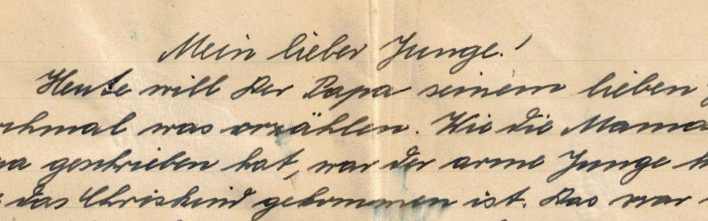 Mein lieber Junge!
Heute will der Papa seinem lieben
was erzählen. Wie die Mama
geschrieben hat, war der arme Junge
das Christkind gekommen ist. Das war